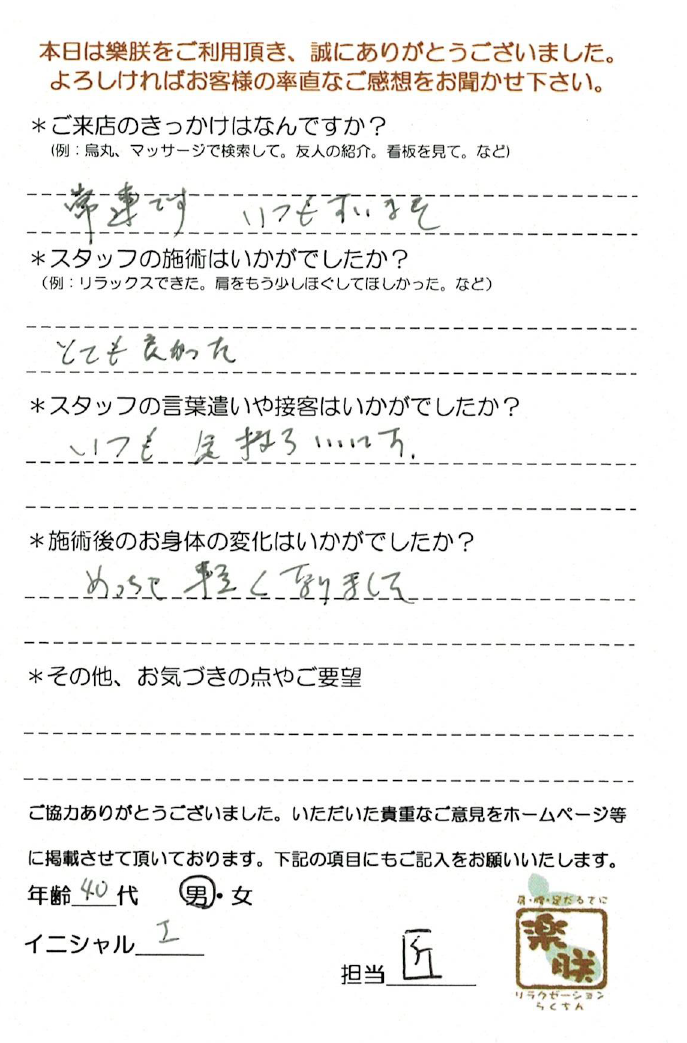 本日は樂朕をご利用頂き、誠にありがとうございました。
よろしければお客様の率直なご感想をお聞かせ下さい。
＊ご来店のきっかけはなんですか？
(例：烏丸、マッサージで検索して。友人の紹介。看板を見て。など)
常連です いつも
＊スタッフの施術はいかがでしたか？
（例：リラックスできた。肩をもう少しほぐしてほしかった。など）
とても良かった
＊スタッフの言葉遣いや接客はいかがでしたか？
いつも 気持ちいいです.
＊施術後のお身体の変化はいかがでしたか？
めっちゃ 軽くなりました
＊その他、お気づきの点やご要望
ご協力ありがとうございました。いただいた貴重なご意見をホームページ等
に掲載させて頂いております。下記の項目にもご記入をお願いいたします。
年齢 40 代 男・女
イニシャル I
担当 匠
肩・腰・足だるてに
楽朕
リラクゼーション
らくちん